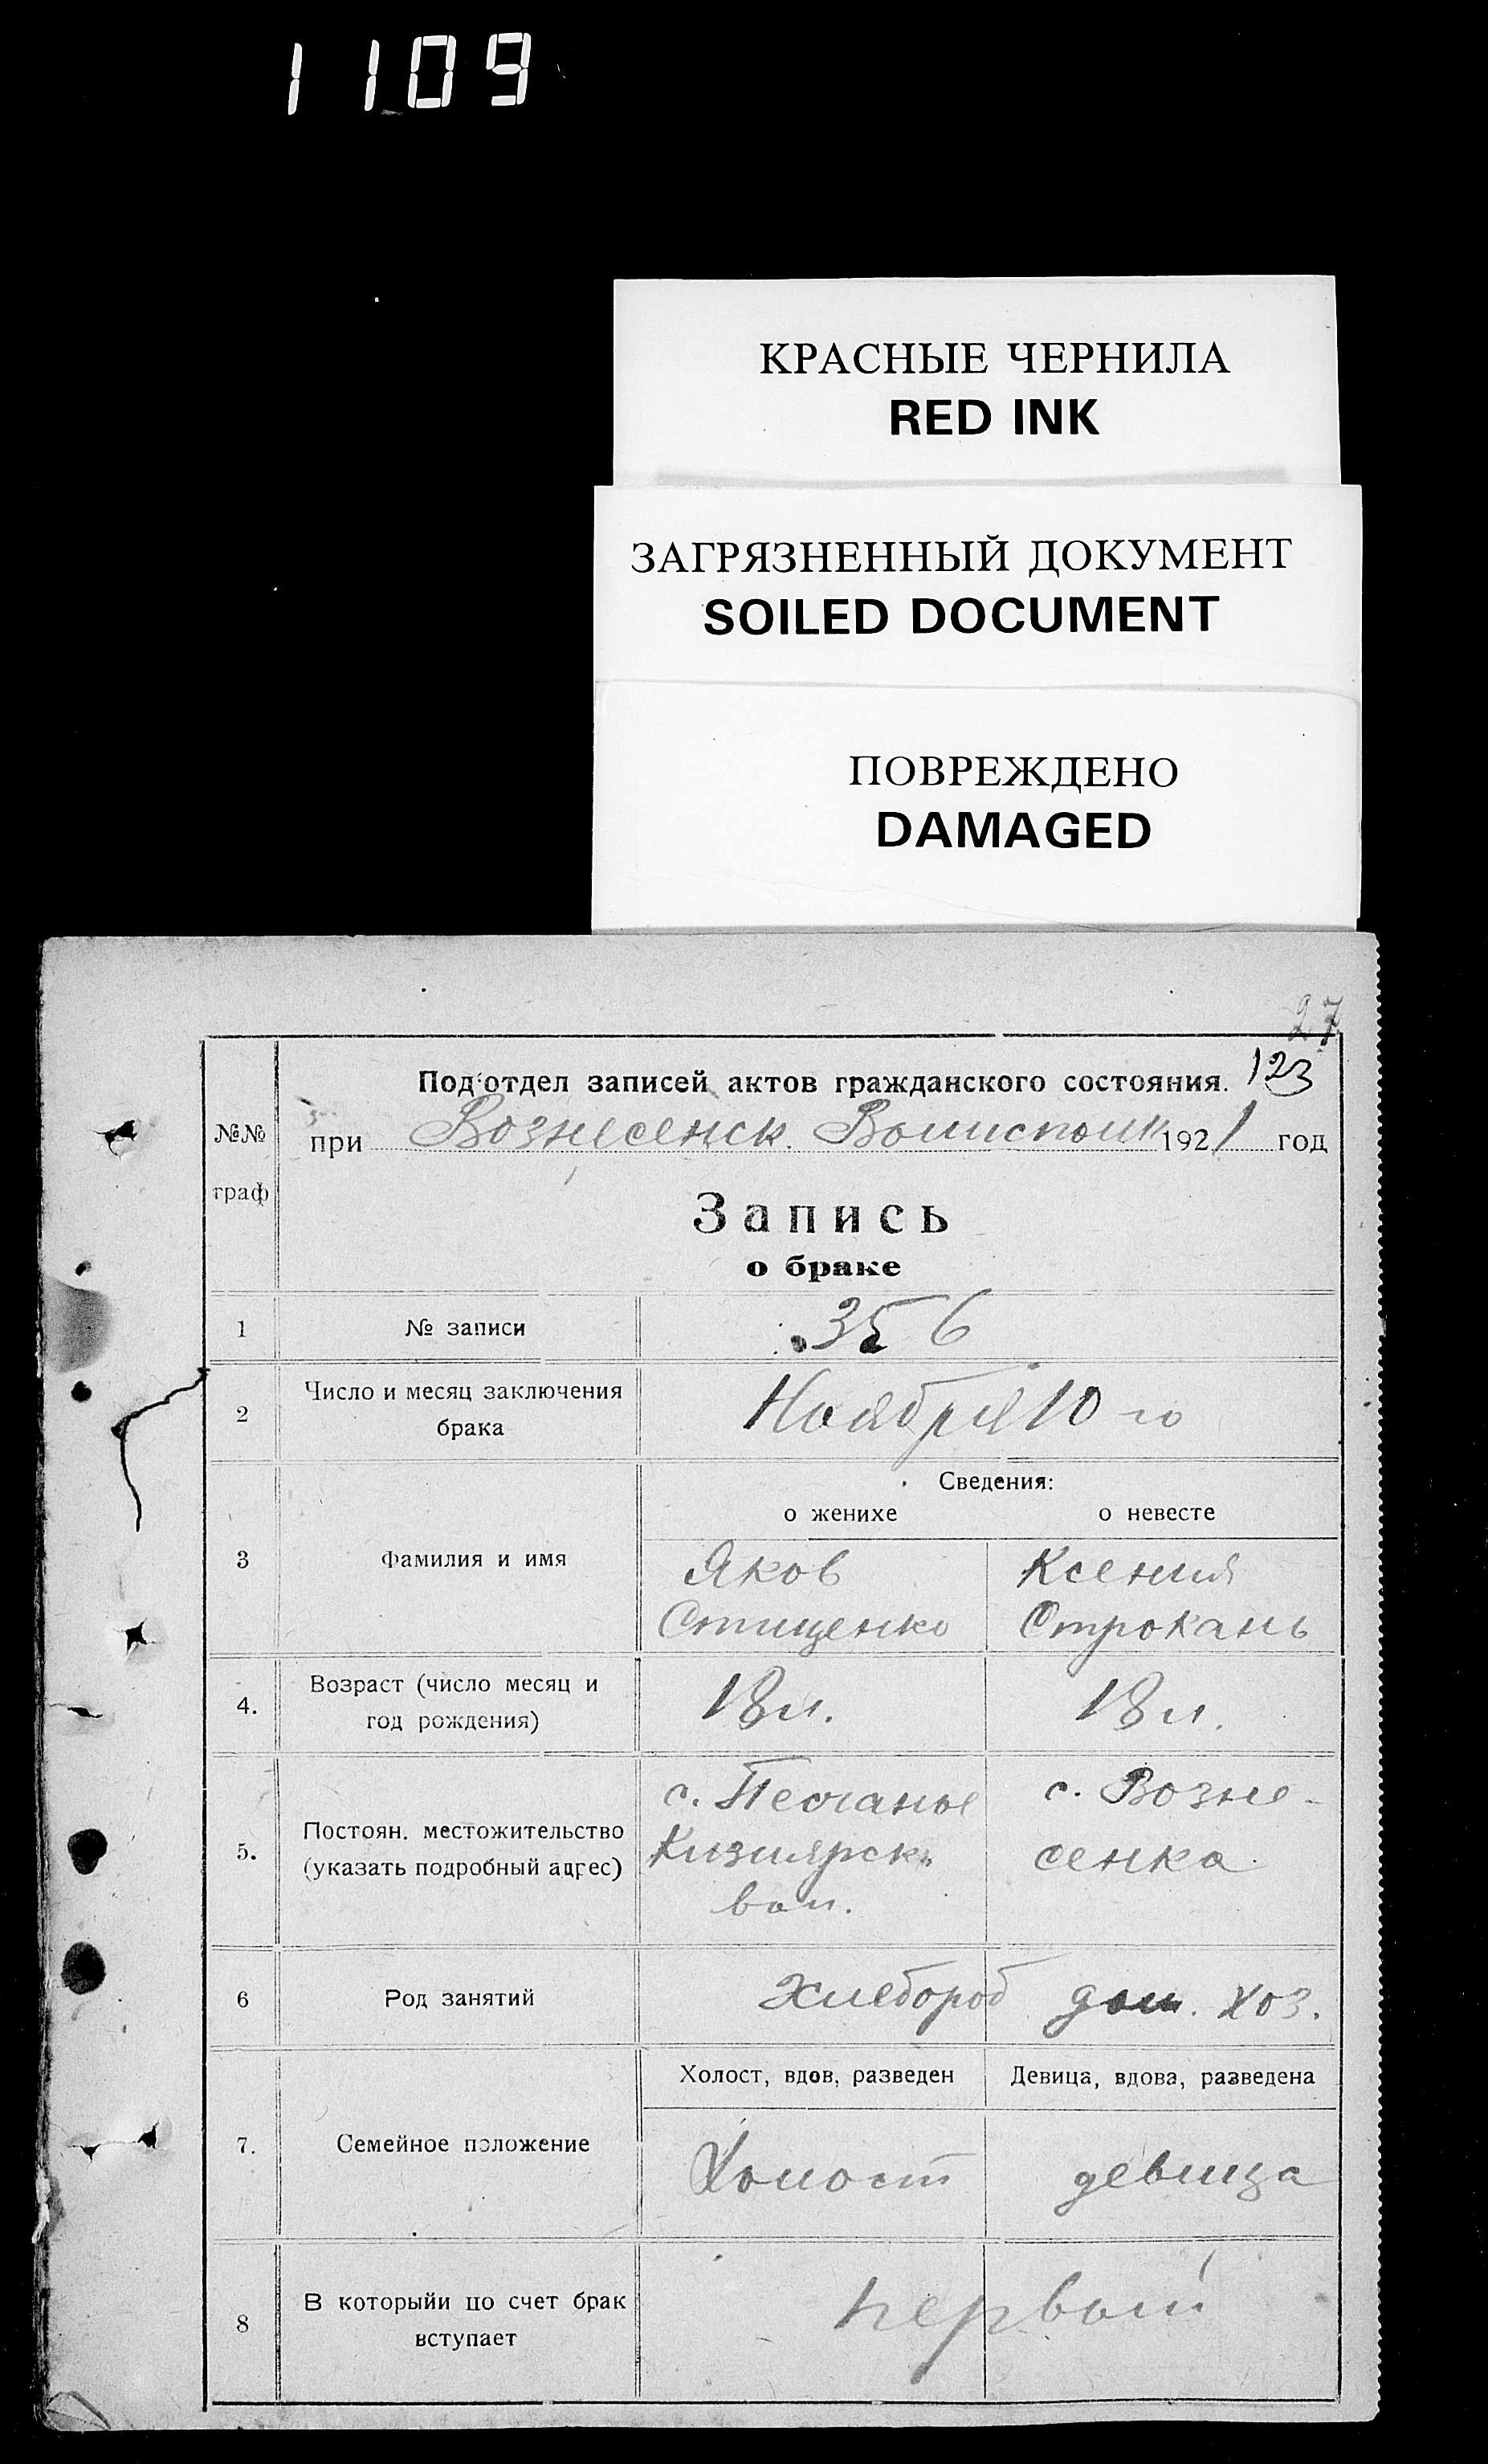 1109
КРАСНЫЕ ЧЕРНИЛА
RED INK
ЗАГРЯЗНЕННЫЙ ДОКУМЕНТ
SOILED DOCUMENT
ПОВРЕЖДЕНО
DAMAGED
27
123
Подотдел записей актов гражданского состояния.
№№ граф
при Вознесенск. Волисполк 1921 год
Запись
о браке
1 № записи 356
2 Число и месяц заключения
брака
Ноября 10-го
Сведения:
о женихе о невесте
3 Фамилия и имя
Яков Ксения
Стищенко Строкань
4. Возраст (число месяц и
год рождения)
18 л. 18 л.
5. Постоян. местожительство
(указать подробный адрес)
с. Песчаное с. Возне-
Кизиярск. сенка
вол.
6 Род занятий Хлебороб дом. хоз.
Холост, вдов, разведен Девица, вдова, разведена
7. Семейное положение
Холост девица
8 В которыйи по счет брак
вступает
первый